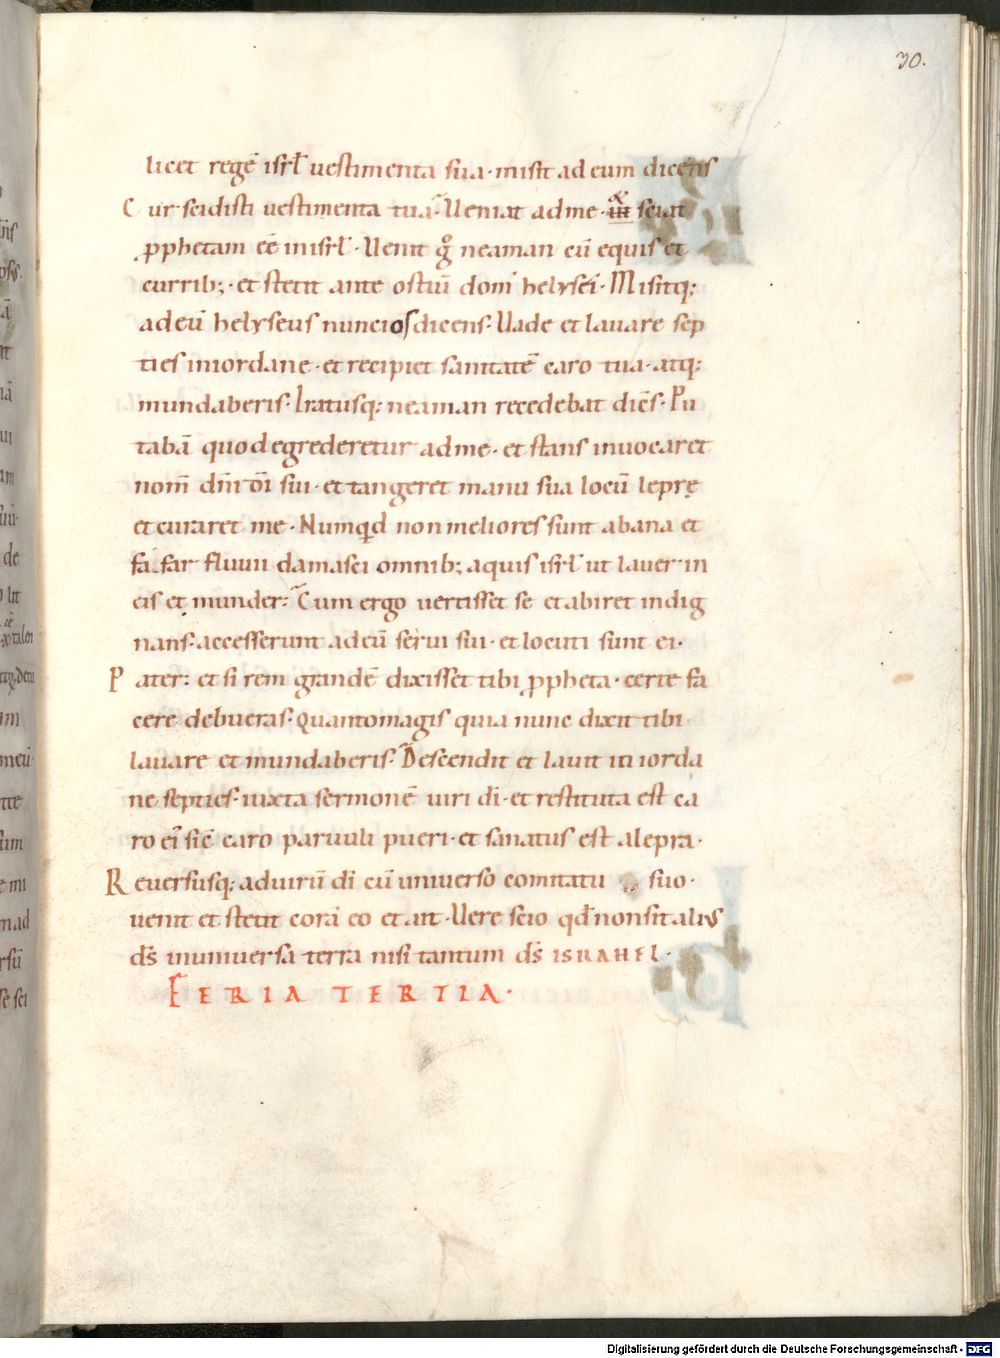 30.
licet regē isrł uestimenta sua· misit ad eum dicens
Cur scidisti uestimenta tua· Ueniat ad me· sciat
pphetam eē in isrł· Uenit g̊ neaman cū equis et
currib;· et stetit ante ostiū dom' helysei· Misitq;
ad eū helyseus nuncios dicens· Uade et lauare sep
ties in iordane· et recipiet sanitatē caro tua· atq;
mundaberis· Iratusq; neaman recedebat dic̄s· Pu
tabā quod egrederetur ad me· et stans inuocaret
nom̄ dm̄i dī sui· et tangeret manu sua locū leprę
et curaret me· Numqd non meliores sunt abana et
farfar fluuii damasci omnib; aquis isrł ut lauer in
eis et munder· Cum ergo uertisset se et abiret indig
nans· accesserunt ad eū serui sui· et locuti sunt ei·
Pater· et si rem grandē dixisset tibi ppheta· certe fa
cere debueras· quanto magis quia nunc dixit tibi
lauare et mundaberis· Descendit et lauit in iorda
ne septies· iuxta sermonē uiri dī· et restituta est ca
ro ei' sic̄ caro paruuli pueri· et sanatus est a lepra·
Reuersusq; ad uirū dī cū uniuerso comitatu suo·
uenit et stetit corā eo et ait· Uere scio qd̄ non sit alius
ds̄ in uniuersa terra nisi tantum ds̄ ISRAHEL·
FERIA TERTIA·
Digitalisierung gefördert durch die Deutsche Forschungsgemeinschaft - DFG